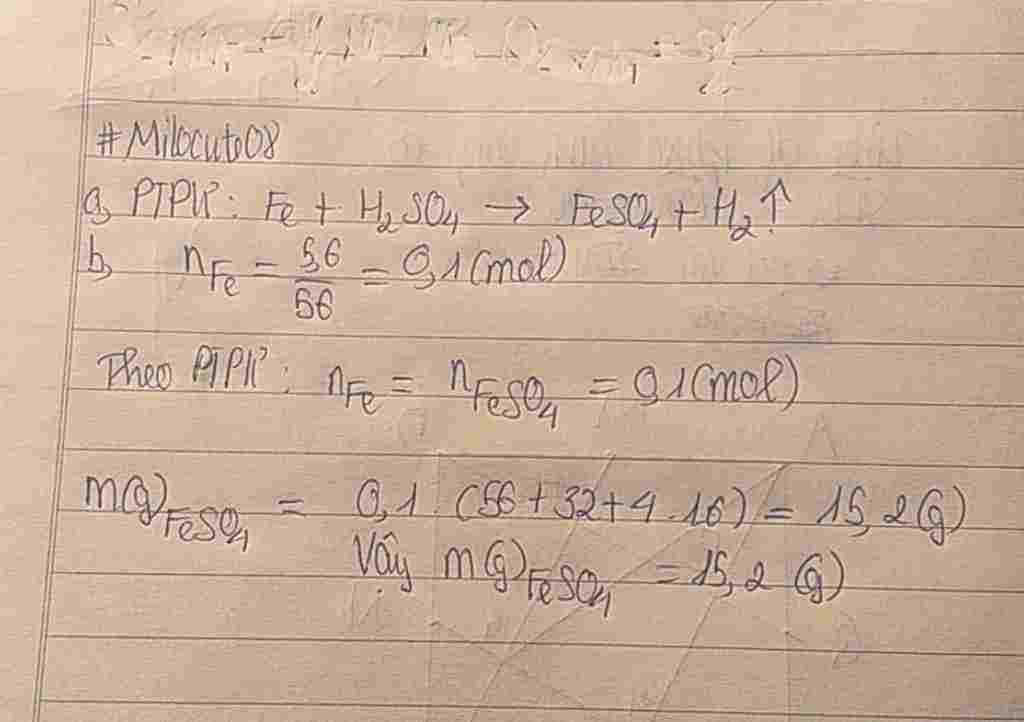 #Milocute08
a, PTPƯ: Fe + H₂SO₄ → FeSO₄ + H₂↑
b, nFe = 5,6/56 = 0,1 (mol)
Theo PTPƯ: nFe = nFeSO₄ = 0,1 (mol)
m(g)FeSO₄ = 0,1 . (56 + 32 + 4 . 16) = 15,2 (g)
Vậy m(g)FeSO₄ = 15,2 (g)